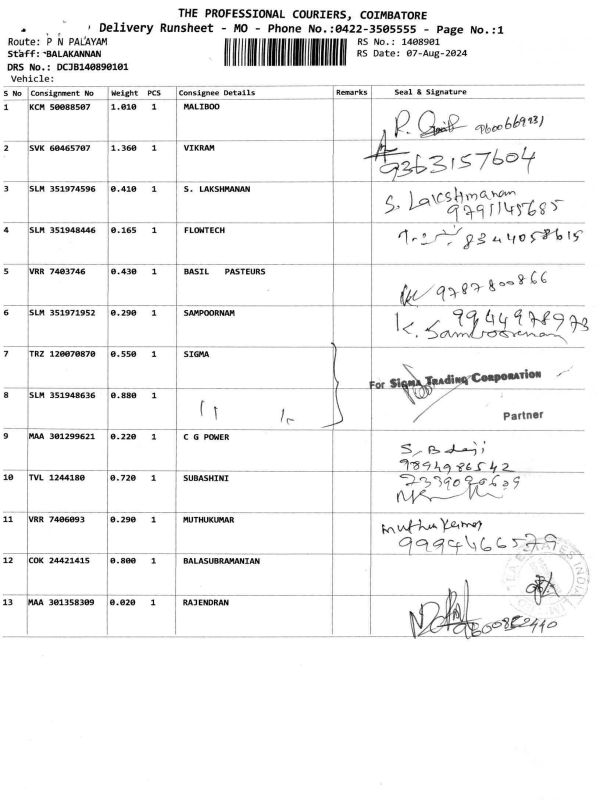 THE PROFESSIONAL COURIERS, COIMBATORE
Delivery Runsheet - MO - Phone No.:0422-3505555 - Page No.:1
Route: P N PALAYAM RS No.: 1408901
Staff: BALAKANNAN RS Date: 07-Aug-2024
DRS No.: DCJB140890101
Vehicle:
S No Consignment No Weight PCS Consignee Details Remarks Seal & Signature
1 KCM 50088507 1.010 1 MALIBOO
2 SVK 60465707 1.360 1 VIKRAM 9363157604
3 SLM 351974596 0.410 1 S. LAKSHMANAN S. Lakshmanan
9791145685
4 SLM 351948446 0.165 1 FLOWTECH 8344058615
5 VRR 7403746 0.430 1 BASIL PASTEURS 9787800866
6 SLM 351971952 0.290 1 SAMPOORNAM 9944978973
K. Sampoornam
7 TRZ 120070870 0.550 1 SIGMA
For SIGMA TRADING CORPORATION
8 SLM 351948636 0.880 1 " "
Partner
9 MAA 301299621 0.220 1 C G POWER
9894986542
10 TVL 1244180 0.720 1 SUBASHINI
11 VRR 7406093 0.290 1 MUTHUKUMAR Muthukumar
9994466579
12 COK 24421415 0.800 1 BALASUBRAMANIAN
13 MAA 301358309 0.020 1 RAJENDRAN